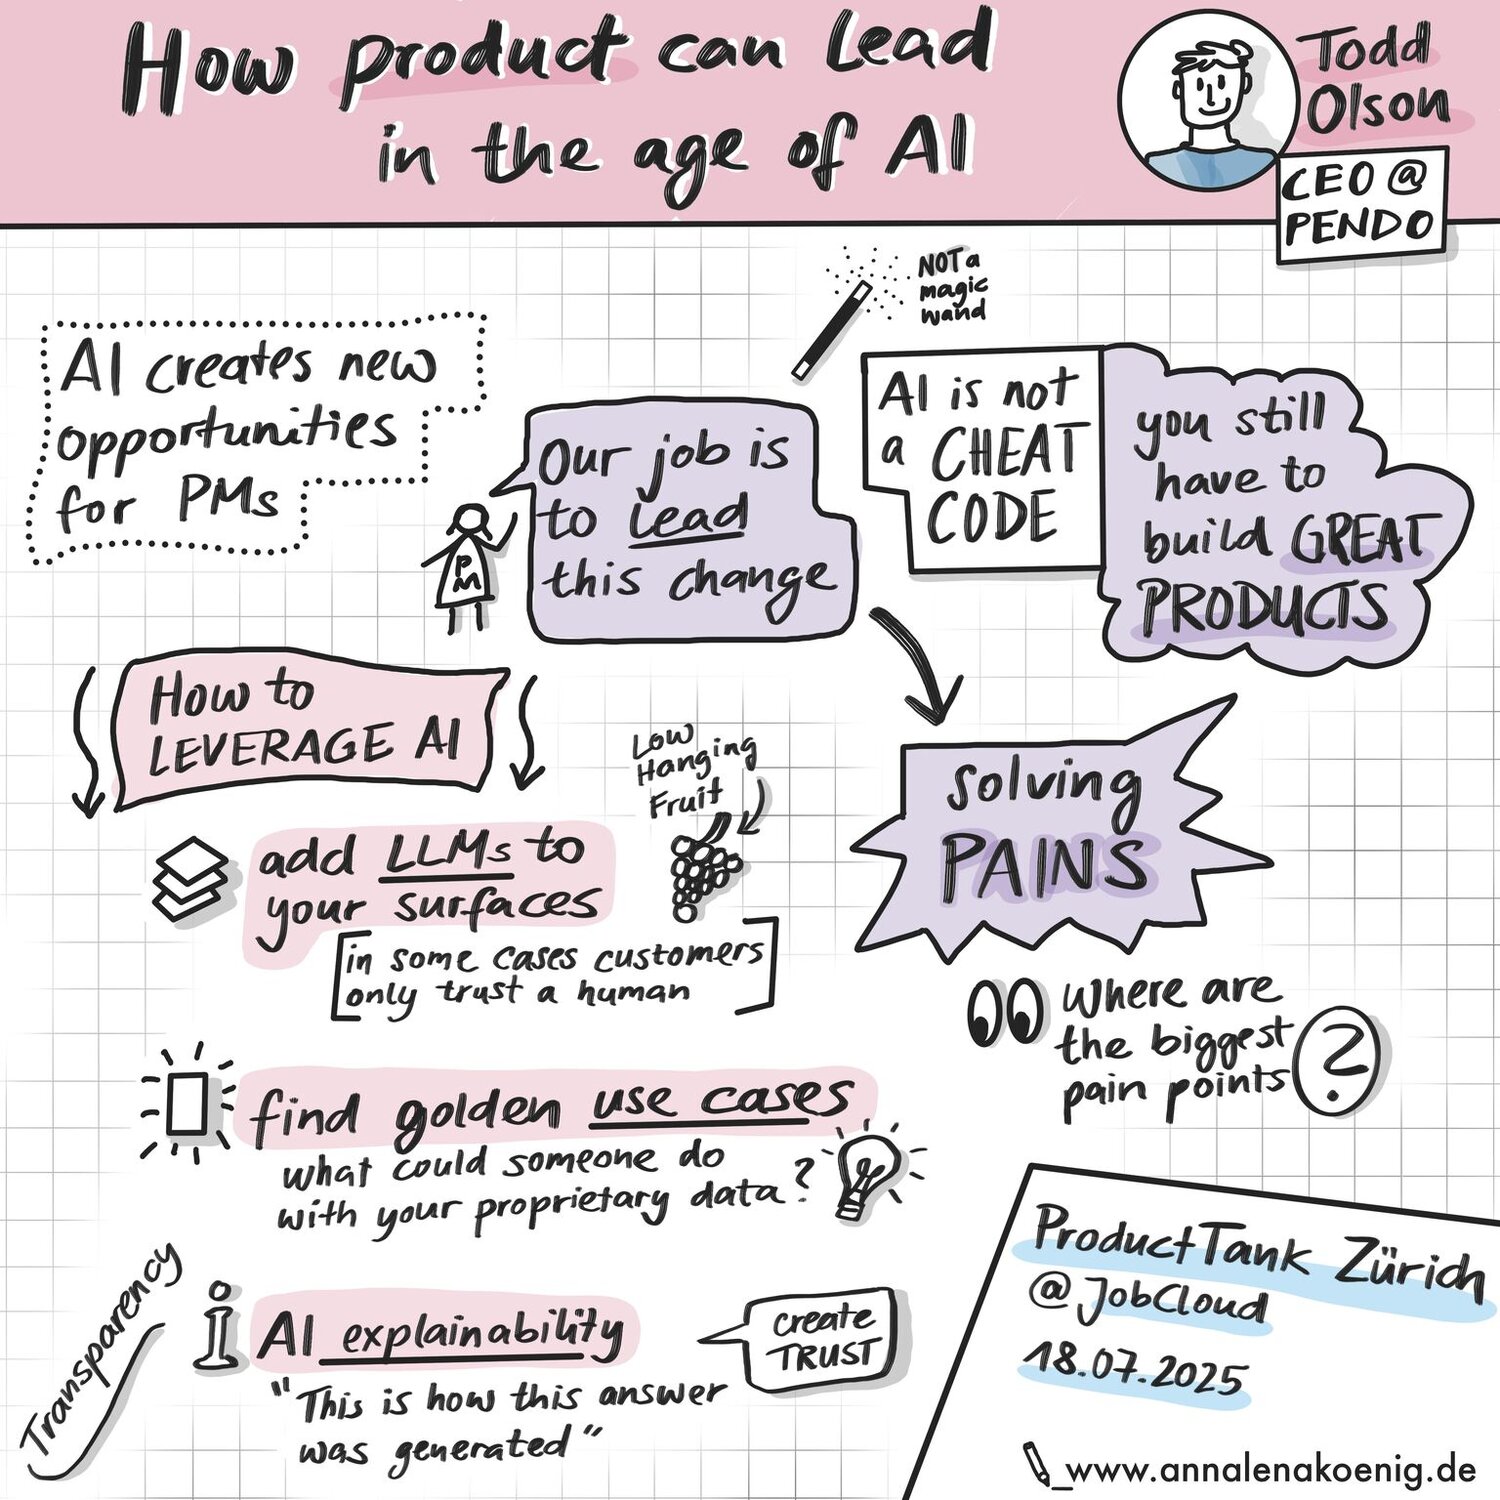 How product can lead
in the age of AI
Todd
Olson
CEO @
PENDO
NOT a
magic
wand
AI creates new
opportunities
for PMs
PM
Our job is
to lead
this change
AI is not
a CHEAT
CODE
you still
have to
build GREAT
PRODUCTS
How to
LEVERAGE AI
Low
Hanging
Fruit
add LLMs to
your surfaces
in some cases customers
only trust a human
solving
PAINS
Where are
the biggest
pain points
?
find golden use cases
what could someone do
with your proprietary data?
Transparency
i
AI explainability
"This is how this answer
was generated"
create
TRUST
ProductTank Zürich
@JobCloud
18.07.2025
www.annalenakoenig.de